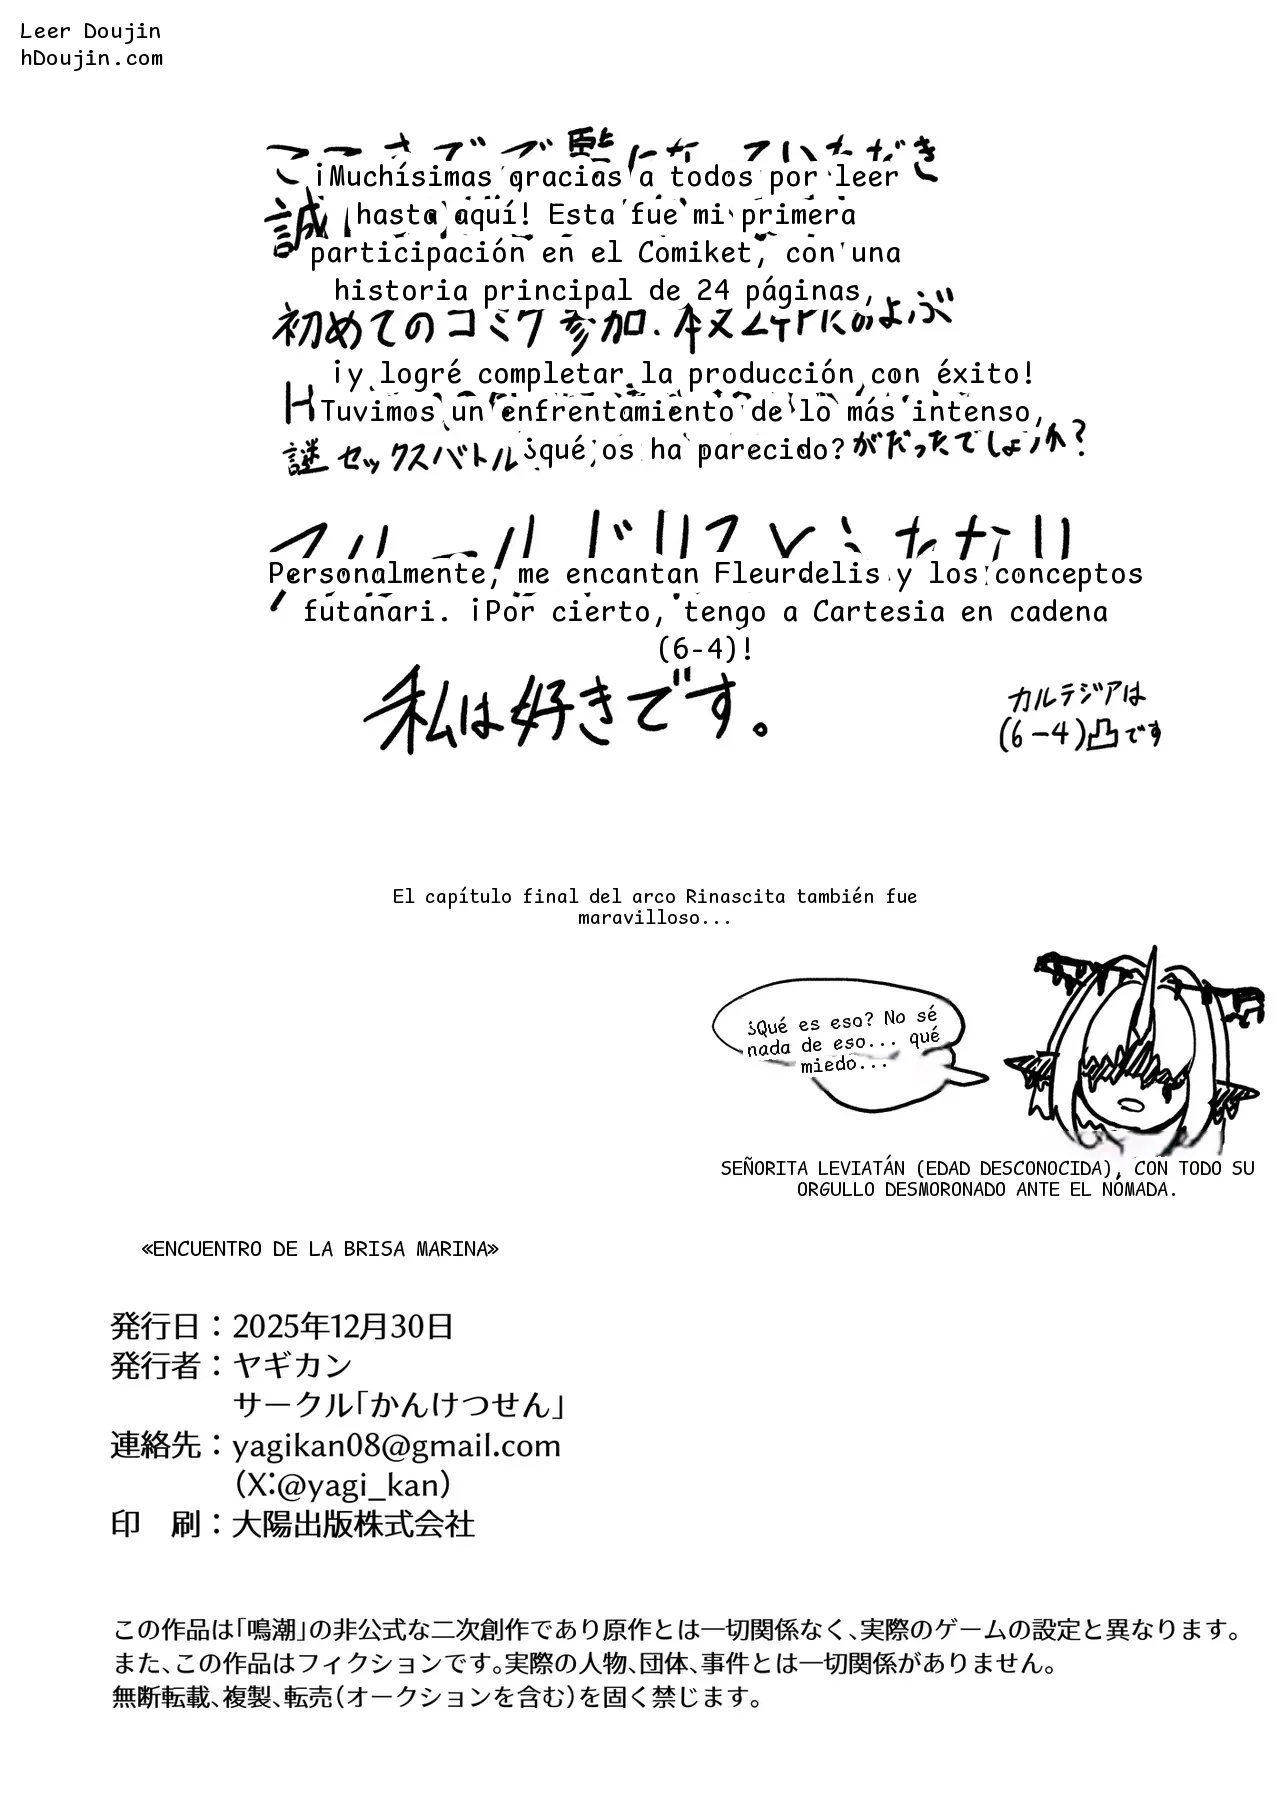 Leer Doujin
hDoujin.com
¡Muchísimas gracias a todos por leer
hasta aquí! Esta fue mi primera
participación en el Comiket, con una
historia principal de 24 páginas,
初めてのコミケ参加、本文
¡y logré completar la producción con éxito!
Tuvimos un enfrentamiento de lo más intenso,
謎セックスバトル ¿qué os ha parecido? がだったでしょうか?
Personalmente, me encantan Fleurdelis y los conceptos
futanari. ¡Por cierto, tengo a Cartesia en cadena
(6-4)!
私は好きです。
カルテジアは
(6-4)凸です
El capítulo final del arco Rinascita también fue
maravilloso...
¿Qué es eso? No sé
nada de eso... qué
miedo...
SEÑORITA LEVIATÁN (EDAD DESCONOCIDA), CON TODO SU
ORGULLO DESMORONADO ANTE EL NÓMADA.
«ENCUENTRO DE LA BRISA MARINA»
発行日：2025年12月30日
発行者：ヤギカン
サークル「かんけつせん」
連絡先：yagikan08@gmail.com
（X:@yagi_kan）
印　刷：大陽出版株式会社
この作品は「鳴潮」の非公式な二次創作であり原作とは一切関係なく、実際のゲームの設定と異なります。
また、この作品はフィクションです。実際の人物、団体、事件とは一切関係がありません。
無断転載、複製、転売（オークションを含む）を固く禁じます。